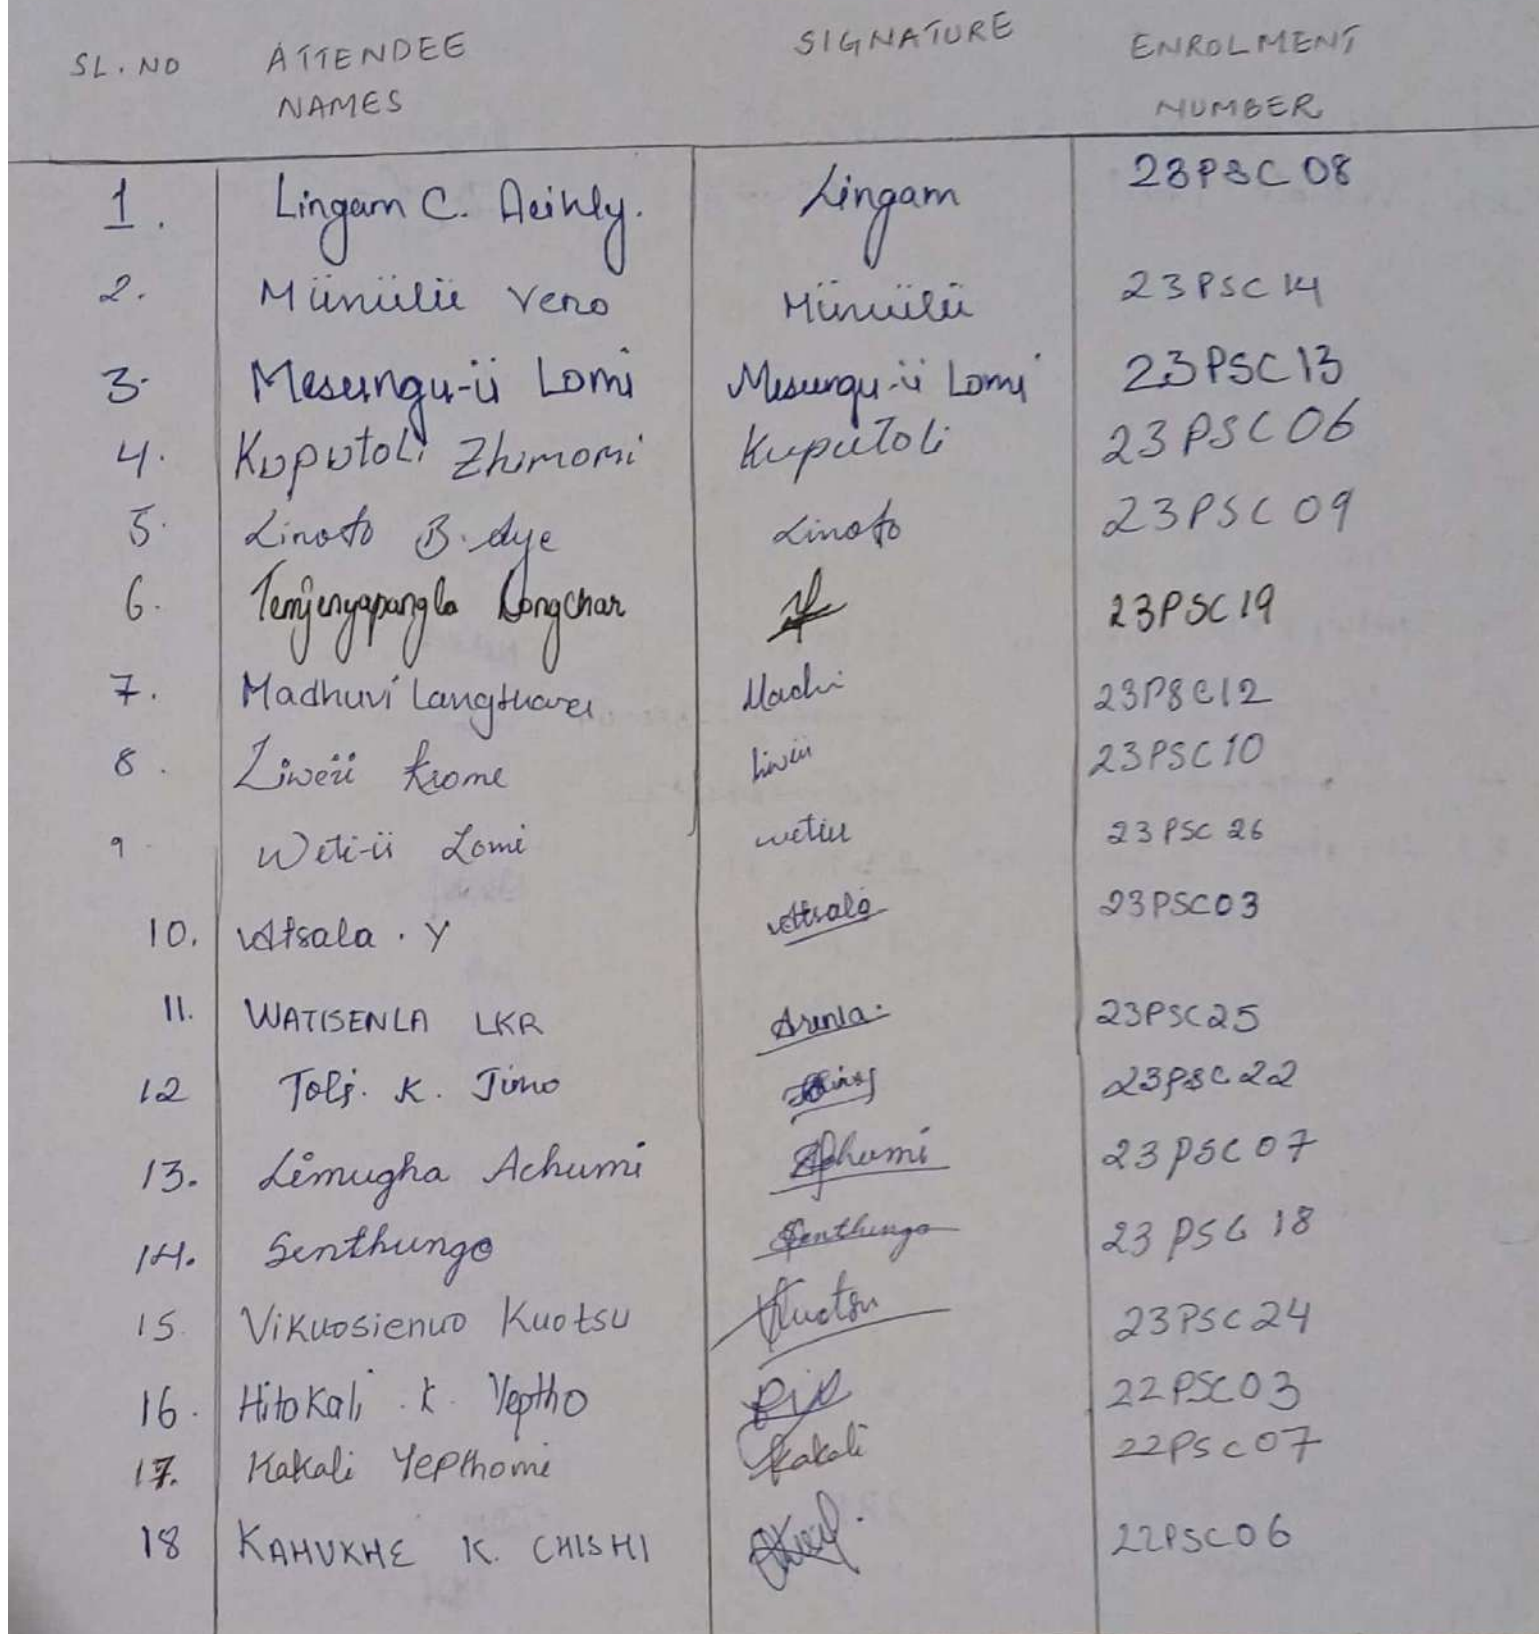 SL. NO ATTENDEE NAMES SIGNATURE ENROLMENT NUMBER
1. Lingam C. Aeihly. Lingam 23PSC08
2. Münülü Vero Münülü 23PSC14
3. Mesungu-ü Lomi Mesungu-ü Lomi 23PSC13
4. Kuputoli Zhimomi Kuputoli 23PSC06
5. Linoto B. Aye Linoto 23PSC09
6. Temjenyapangla Longchar 23PSC19
7. Madhuvi 23PSC12
8. Ziweü Krome 23PSC10
9 Weti-ü Lomi wetiu 23PSC26
10. Atsala. Y Atsala 23PSC03
11. WATISENLA LKR Arenla. 23PSC25
12 Toli. K. Jimo 23PSC22
13. Limugha Achumi Achumi 23PSC07
14. Senthungo Senthungo 23PSC18
15. Vikuosienuo Kuotsu Kuotsu 23PSC24
16. Hitokali. K. Yeptho 22PSC03
17. Kakali Yepthomi Kakali 22PSC07
18 KAHUKHE K. CHISHI 22PSC06